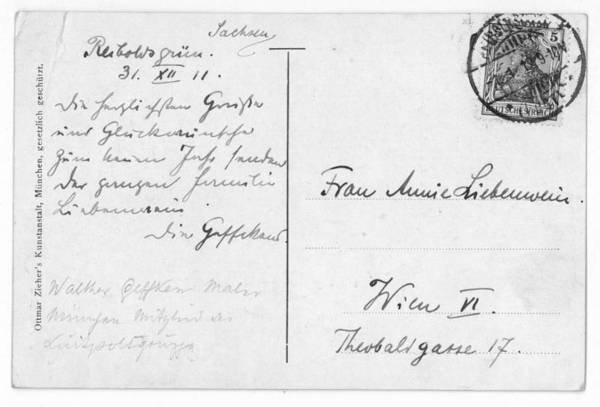 Sachsen
Reiboldsgrün.
31. XII 11.
Die herzlichsten Grüße
und Glückwünsche
zum neuen Jahr senden
der ganzen Familie
Liebenwein
Die Geffckens.
Walther Geffken Maler
München Mitglied der
Luitpoldgruppe
Ottmar Zieher's Kunstanstalt, München, gesetzlich geschützt.
5
DEUTSCHES REICH
Frau Annie Liebenwein.
Wien VI.
Theobaldgasse 17.